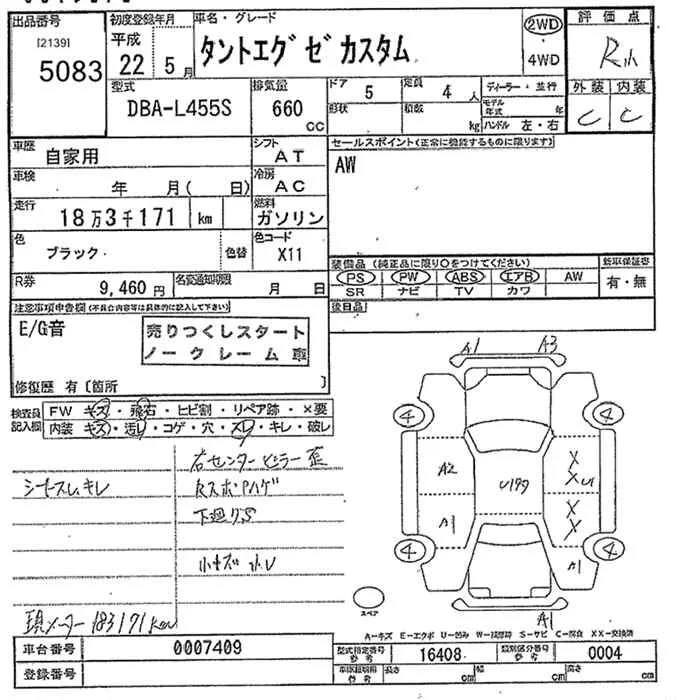 出品番号
[2139]
5083
初度登録年月
平成
22 5月
車名・グレード
タントエグゼカスタム
2WD
4WD
評価点
R小
外装 内装
C C
型式
DBA-L455S
排気量
660
cc
ドア
5
形状
定員
4 人
積数
kg
ディーラー・並行
モデル年式 年
ハンドル 左・右
車歴
自家用
シフト
AT
車検
年 月( 日)
冷房
AC
走行
18万3千171 km
燃料
ガソリン
色
ブラック
色替
色コード
X11
R券
9,460円
名変通知期限
月 日
セールスポイント(正常に機能するものに限ります)
AW
装備品(純正品に限り〇をつけてください)
PS PW ABS エアB AW
SR ナビ TV カワ
新車保証書
有・無
後日品
注意事項申告欄(不具合内容等は具体的に記入して下さい)
E/G音
売りつくしスタート
ノークレーム車
修復歴 有〔箇所 〕
検査員記入欄
FW キズ・飛石・ヒビ割・リペア跡・×要
内装 キズ・汚レ・コゲ・穴・スレ・キレ・破レ
右センターピラー歪
シートスレ キレ
下廻りS
小キズ 小U
現メーター183171km
A1 A3
4 4
A2
U179
X XU
X
X
A1
A1
4 4
A1
スペア
A-キズ E-エクボ U-凹み W-補修跡 S-サビ C-腐食 XX-交換済
車台番号
0007409
登録番号
型式指定番号参考
16408
類別区分番号参考
0004
車検証記明参考
長さ cm
幅 cm
高さ cm